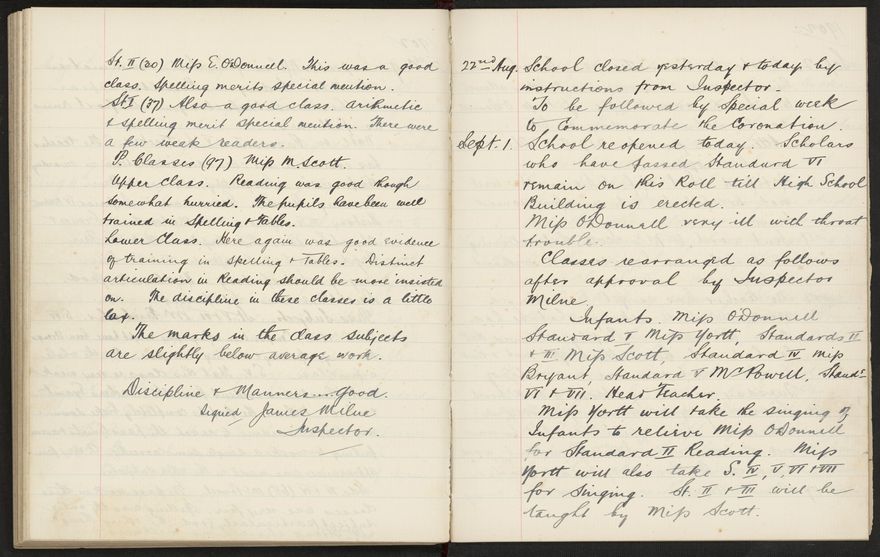 St. II (20) Miss E. O'Donnell. This was a good
class. Spelling merits special mention.
St I (37) Also a good class. Arithmetic
& spelling merit special mention. There were
a few weak readers.
P. Classes (97) Miss M. Scott.
Upper Class. Reading was good though
somewhat hurried. The pupils have been well
trained in Spelling & Tables.
Lower Class. Here again was good evidence
of training in spelling & Tables. Distinct
articulation in Reading should be more insisted
on. The discipline in these classes is a little
lax.
The marks in the class subjects
are slightly below average work.
Discipline & Manners... Good.
Signed James Milne
Inspector.
22nd Aug. School closed yesterday & today by
instructions from Inspector.
To be followed by Special week
to Commemorate the Coronation.
Sept. 1 School reopened today. Scholars
who have passed Standard VI
remain on this Roll till High School
Building is erected.
Miss O'Donnell very ill with throat
trouble.
Classes rearranged as follows
after approval by Inspector
Milne
Infants. Miss O'Donnell
Standard I Miss Yortt, Standards II
& III Miss Scott, Standard IV Miss
Bryant, Standard V Mr Powell, Stands
VI & VII. Head Teacher.
Miss Yortt will take the singing of
Infants to relieve Miss O'Donnell
for Standard II Reading. Miss
Yortt will also take S. IV, V, VI & VII
for singing. St. II & III will be
taught by Miss Scott.